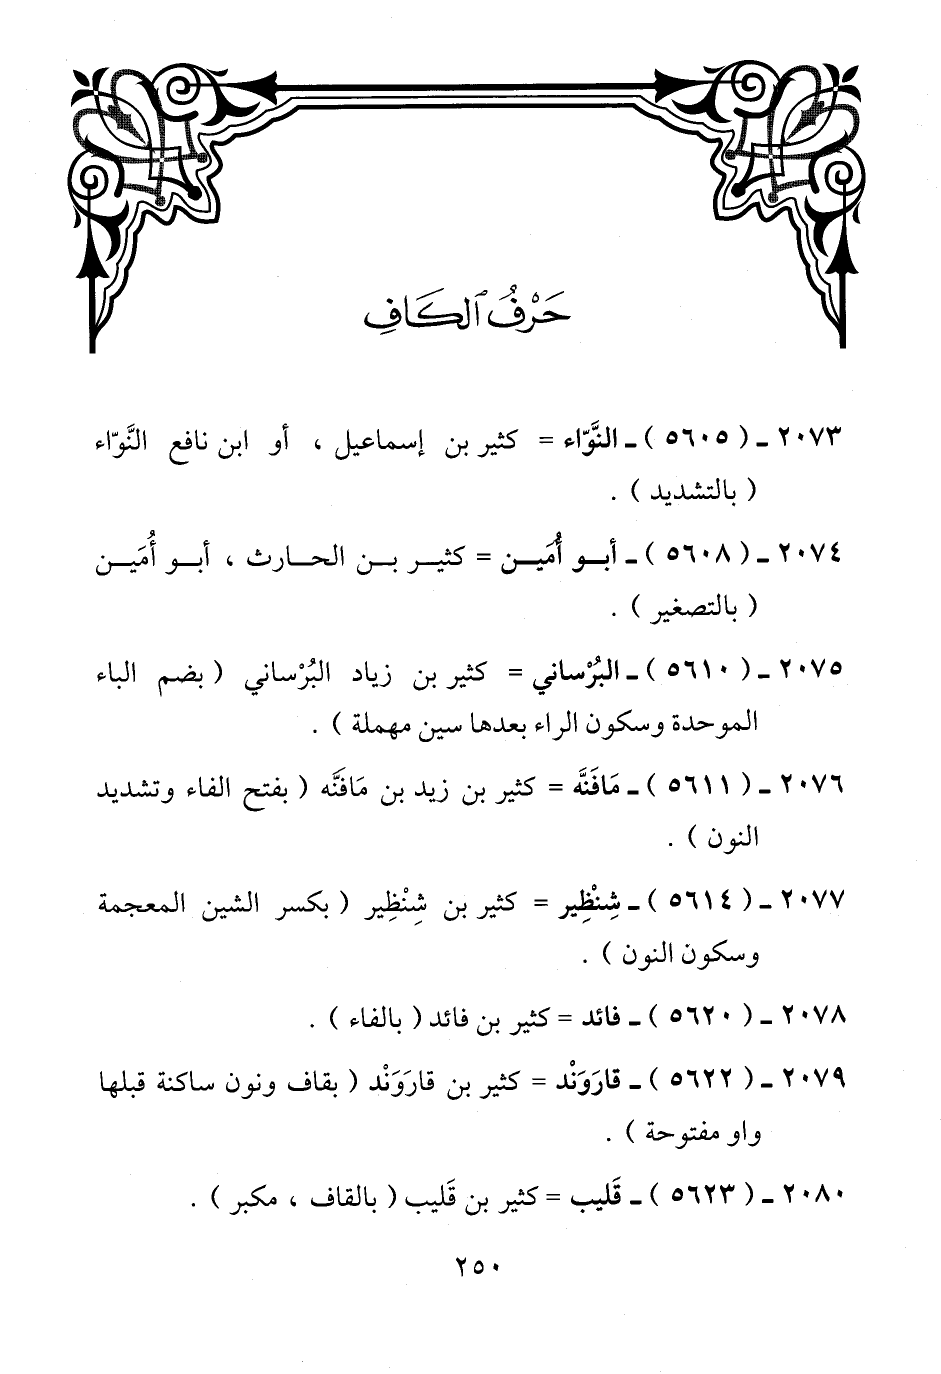 حَرْفُ ٱلكَافِ
٢٠٧٣ ـ ( ٥٦٠٥ ) ـ النَّوّاء = كثير بن إسماعيل ، أو ابن نافع النَّوّاء
( بالتشديد ) .
٢٠٧٤ ـ ( ٥٦٠٨ ) ـ أبــو أُمَيــن = كثيــر بــن الحــارث ، أبــو أُمَيــن
( بالتصغير ) .
٢٠٧٥ ـ ( ٥٦١٠ ) ـ البُرْساني = كثير بن زياد البُرْساني ( بضم الباء
الموحدة وسكون الراء بعدها سين مهملة ) .
٢٠٧٦ ـ ( ٥٦١١ ) ـ مَافَنَّه = كثير بن زيد بن مَافَنَّه ( بفتح الفاء وتشديد
النون ) .
٢٠٧٧ ـ ( ٥٦١٤ ) ـ شِنْظِير = كثير بن شِنْظِير ( بكسر الشين المعجمة
وسكون النون ) .
٢٠٧٨ ـ ( ٥٦٢٠ ) ـ فائد = كثير بن فائد ( بالفاء ) .
٢٠٧٩ ـ ( ٥٦٢٢ ) ـ قارَوَنْد = كثير بن قارَوَنْد ( بقاف ونون ساكنة قبلها
واو مفتوحة ) .
٢٠٨٠ ـ ( ٥٦٢٣ ) ـ قَليب = كثير بن قَليب ( بالقاف ، مكبر ) .
٢٥٠